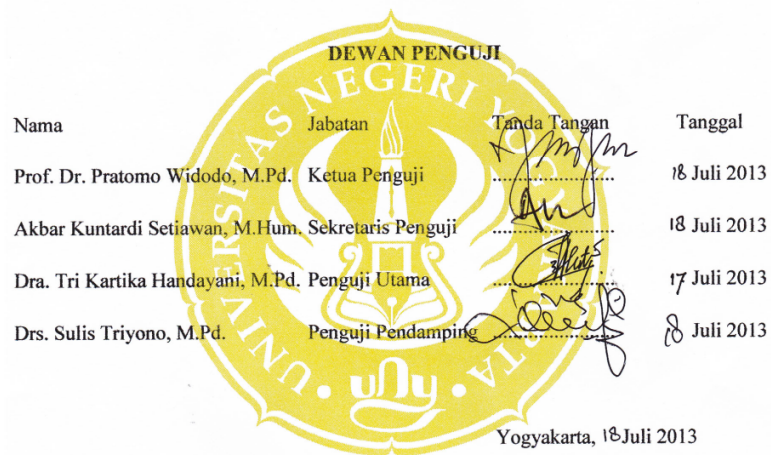 DEWAN PENGUJI
Nama Jabatan Tanda Tangan Tanggal
Prof. Dr. Pratomo Widodo, M.Pd. Ketua Penguji ..................... 18 Juli 2013
Akbar Kuntardi Setiawan, M.Hum. Sekretaris Penguji ..................... 18 Juli 2013
Dra. Tri Kartika Handayani, M.Pd. Penguji Utama ..................... 17 Juli 2013
Drs. Sulis Triyono, M.Pd. Penguji Pendamping ..................... 18 Juli 2013
Yogyakarta, 18 Juli 2013
UNIVERSITAS NEGERI YOGYAKARTA
uny